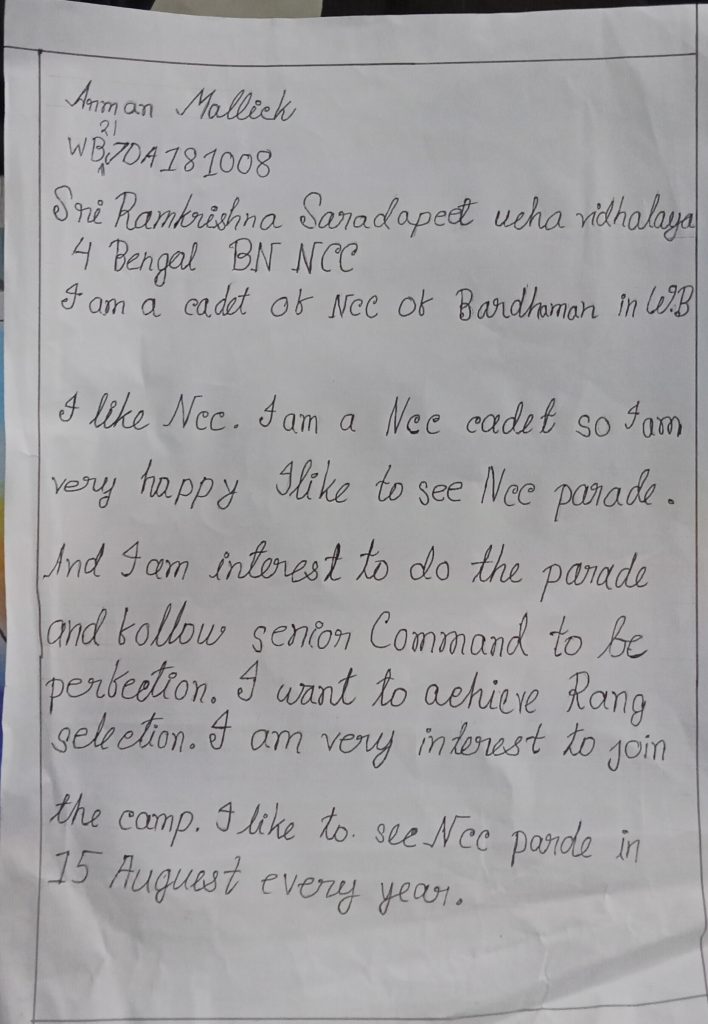 Arman Mallick
WB21JDA181008
Sri Ramkrishna Saradapeet ucha vidhalaya
4 Bengal BN NCC
I am a cadet of Ncc of Bardhaman in W.B
I like Ncc. I am a Ncc cadet so I am
very happy I like to see Ncc parade.
And I am interest to do the parade
and follow senior Command to be
perfection. I want to achieve Rang
selection. I am very interest to join
the camp. I like to. see Ncc parde in
15 Auguest every year.